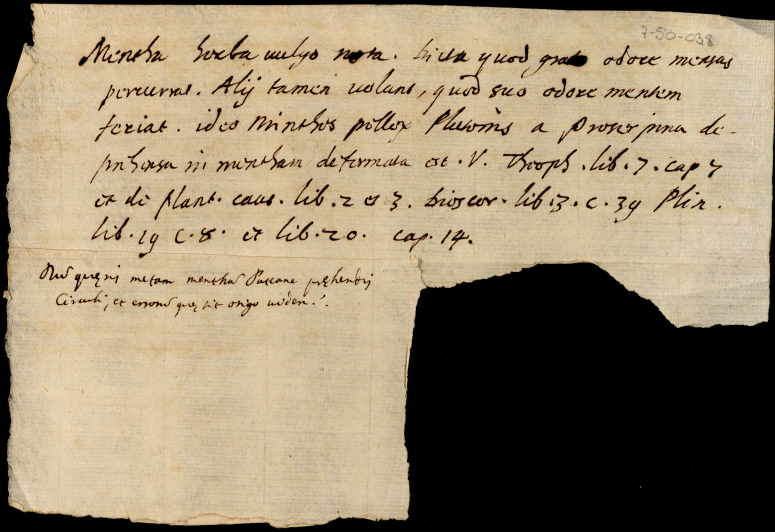 7-50-038
Mentha herba vulgo nota. Dicta quod grato odore mensas
percurrat. Alij tamen uolunt, quod suo odore mentem
feriat. ideo Minthos pellex Plutonis a Proserpina de-
prehensa in mentham deformata est. V. Theoph. lib. 7. cap 7
et de plant. caus. lib. 2 et 3. Dioscor. lib. 3. c. 39 Plin.
lib. 19 c. 8. et lib. 20. cap. 14.
metam mentha Puteane pręhendis
Circuli, et errorum quę sit origo